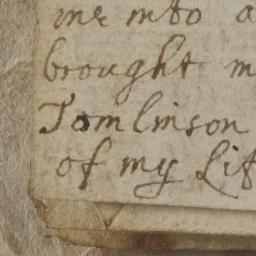 me into a
brought m
Tomlinson
of my Lif